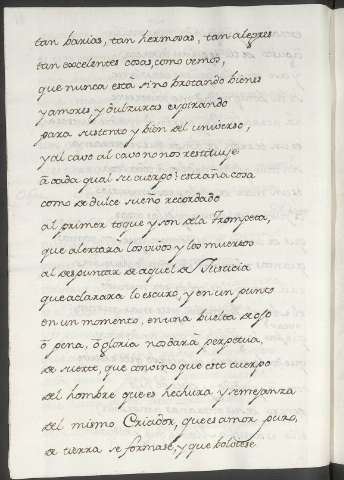 tan barias, tan hermosas, tan alegres
tan excelentes cosas, como vemos,
que nunca está sino brotando bienes
y amores y dulzuras espirando
para sustento y bien del universo,
y al cavo al cavo no nos restituie
ā cada qual su cuerpo: estraña cosa
como de dulce sueño recordado
al primer toque y son de la Trompeta,
que alertará los vivos y los muertos
al despuntar de aquel de Justicia
que aclarara lo escuro, y en un punto
en un momento, en una buelta de ojo
ō pena, ō gloria nos dará perpetua,
de suerte, que convino que este cuerpo
del hombre que es hechura y semejanza
del mismo Criador, que es amor puro,
de tierra se formase, y que bolviese